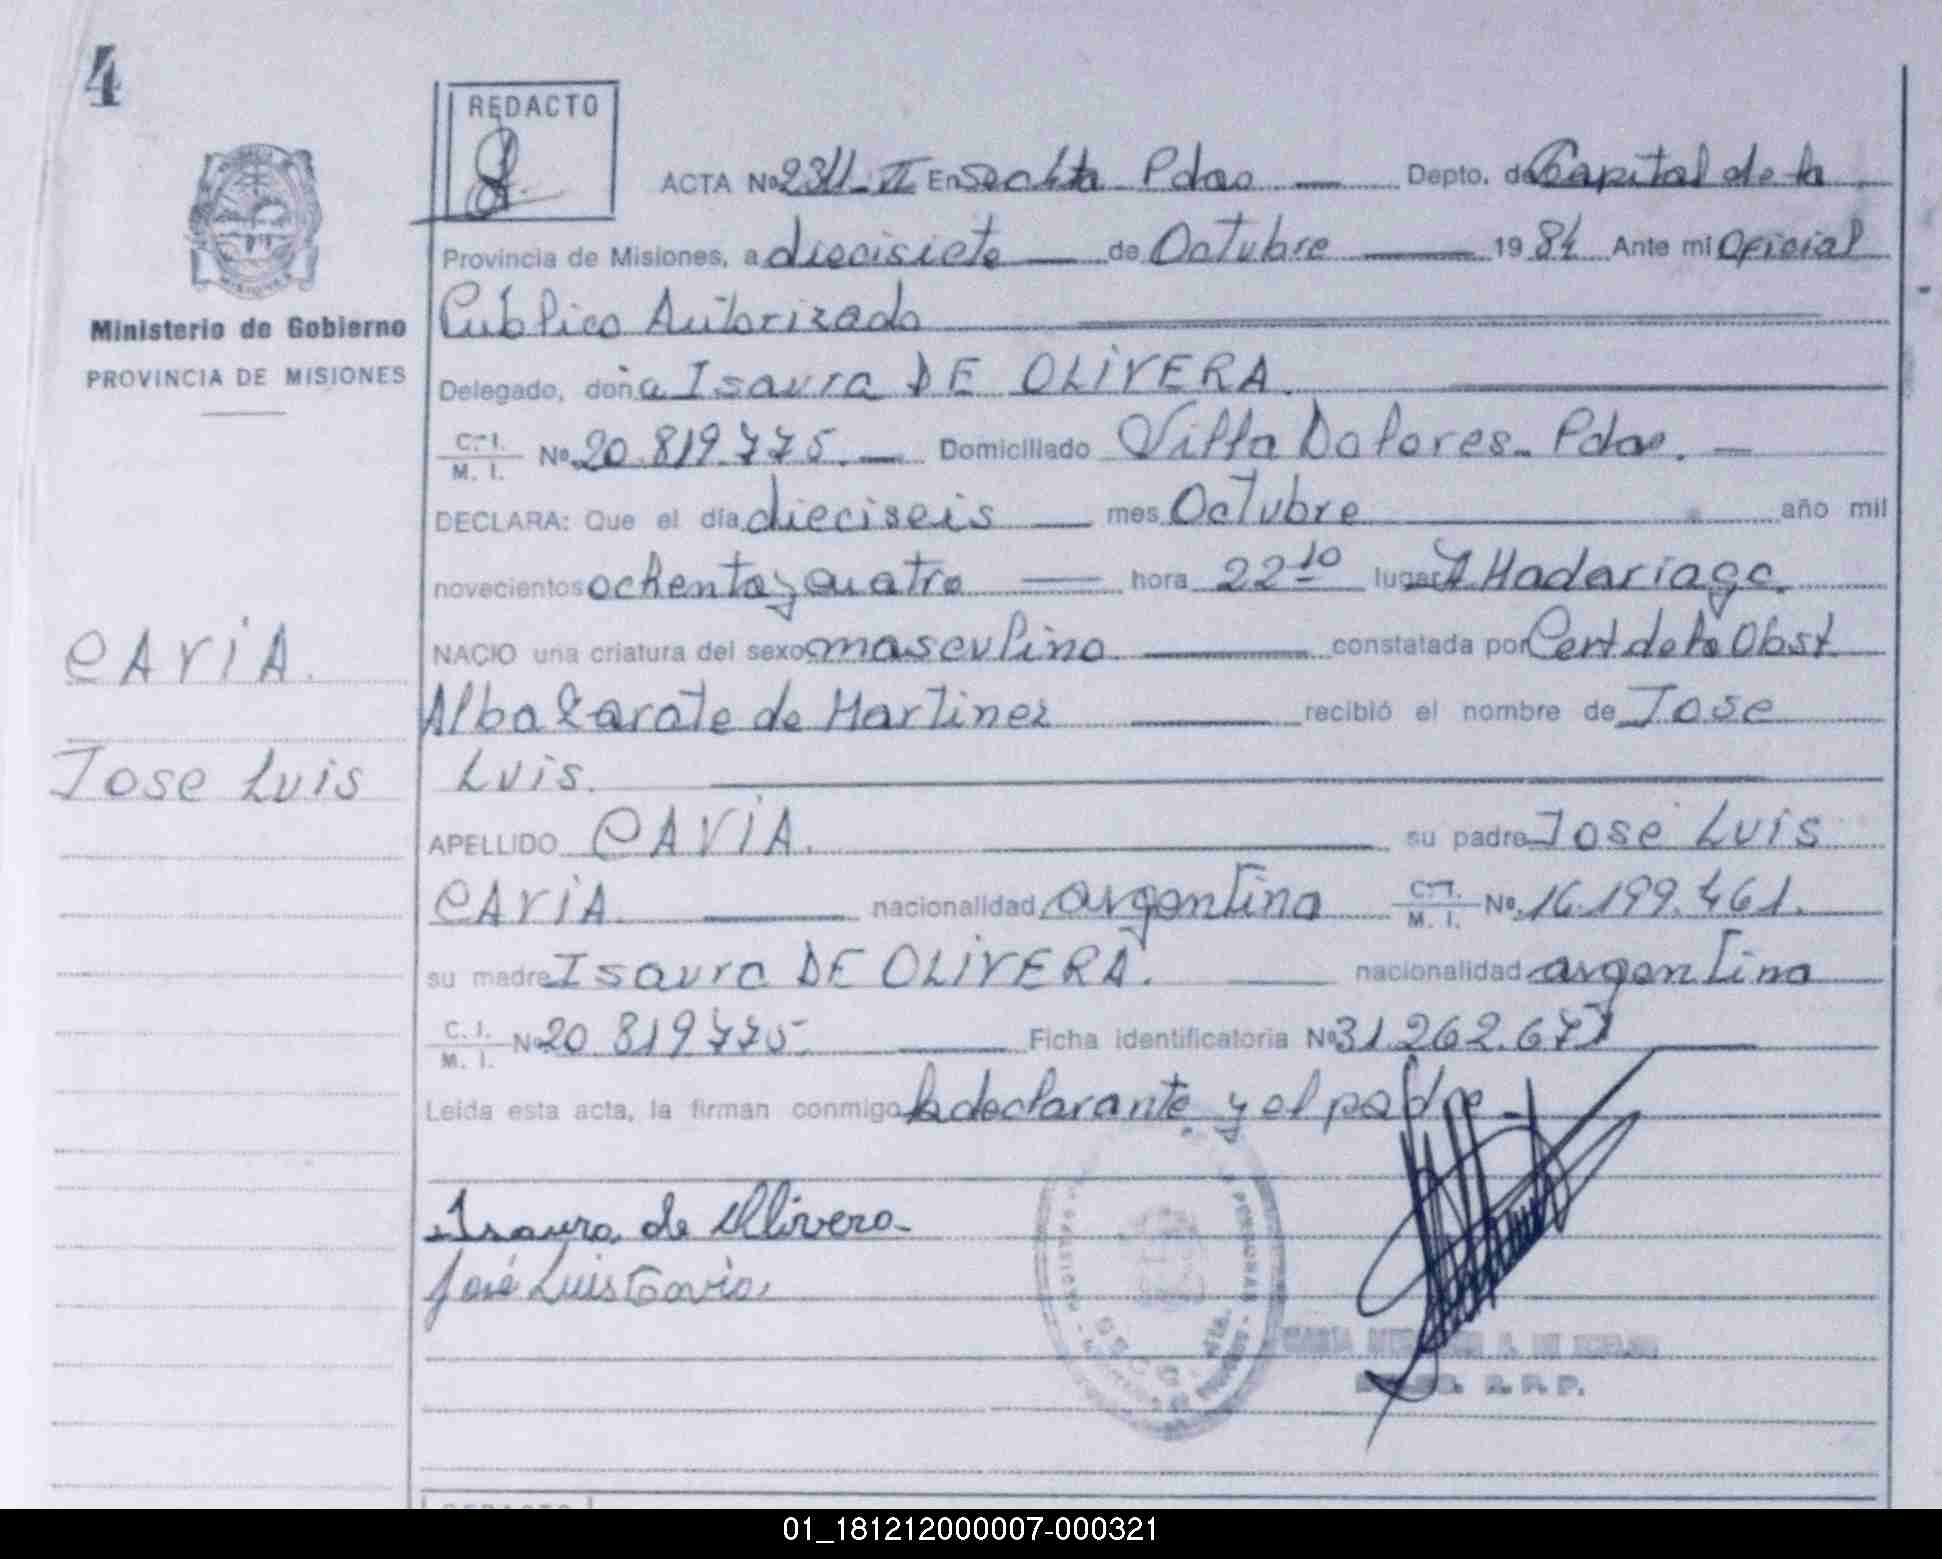 4
REDACTO
ACTA Nº 2311-II En Secc 4ta Pdas Depto. de Capital de la
Provincia de Misiones, a diecisiete de Octubre 1984 Ante mi Oficial
Publico Autorizado
Ministerio de Gobierno
PROVINCIA DE MISIONES
Delegado, doña Isaura DE OLIVERA.
C.I. M. I. Nº 20.819.775. Domiciliado Villa Dolores. Pdas.
DECLARA: Que el día dieciseis mes Octubre año mil
novecientos ochenta y cuatro hora 22 10 lugar H Madariaga.
NACIO una criatura del sexo masculino constatada por Cert de la Obst
Alba Zarate de Martinez recibió el nombre de Jose
Luis.
CAVIA.
Jose Luis
APELLIDO CAVIA. su padre Jose Luis
CAVIA. nacionalidad argentina C.I. M. I. Nº 16.199.461.
su madre Isaura DE OLIVERA. nacionalidad argentina
C. I. M. I. Nº 20 819775 Ficha identificatoria Nº 31.262.677
Leida esta acta, la firman conmigo la declarante y el padre
Isaura de Olivera
José Luis Cavia
R. P. P.
REDACTO
01_181212000007-000321